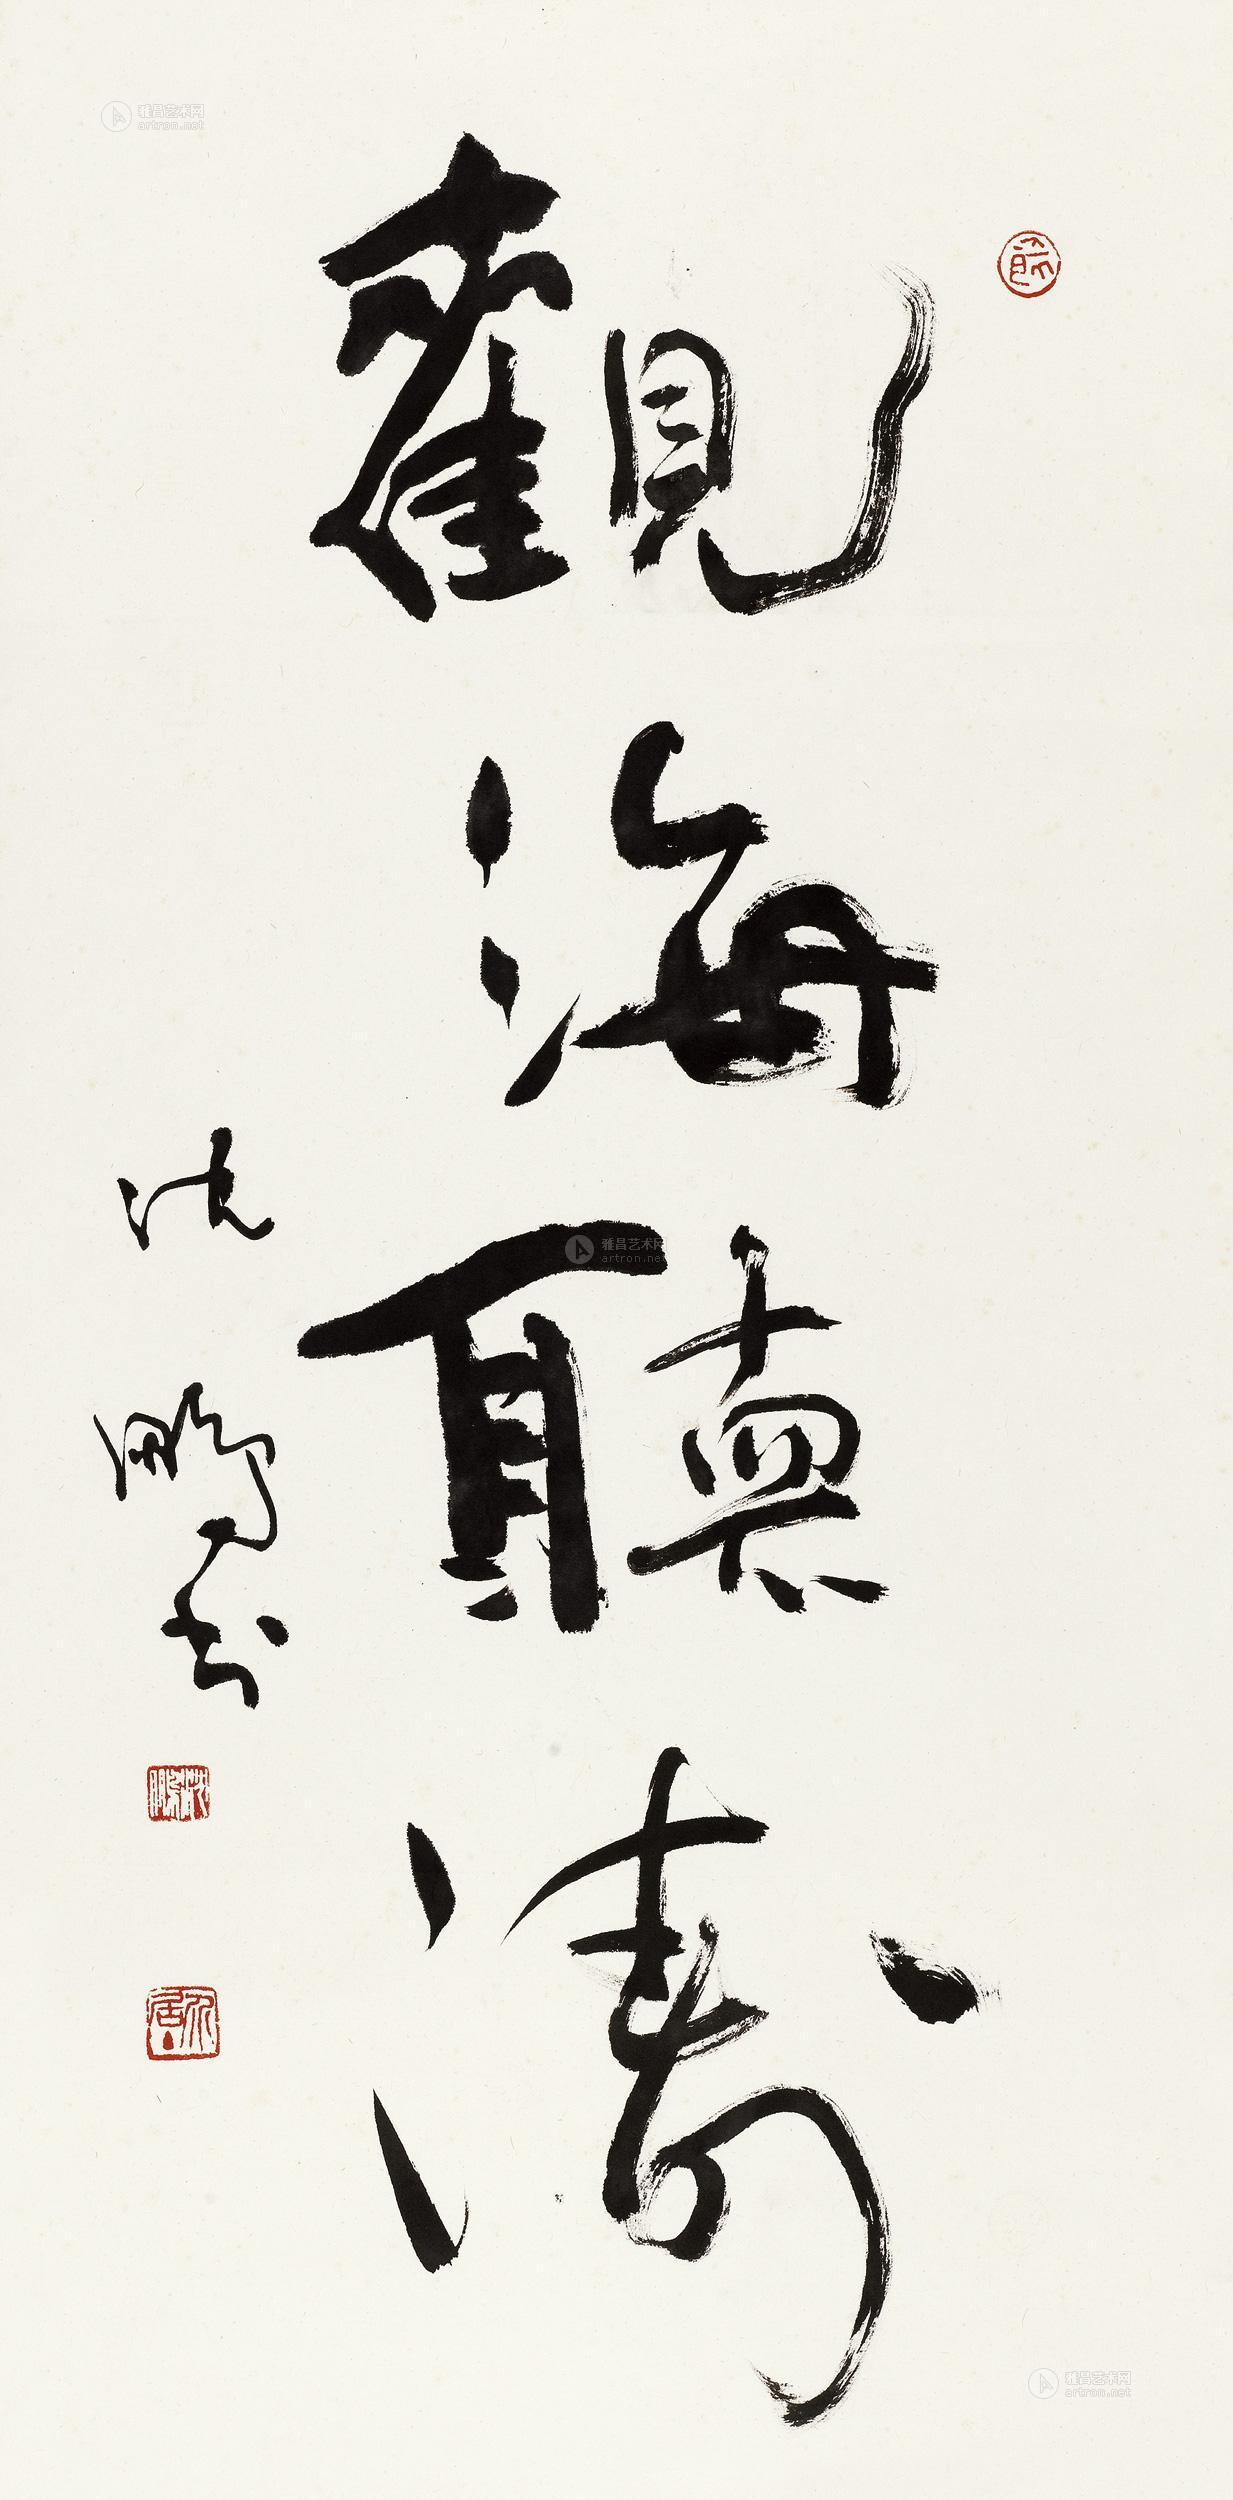 觀海聽濤
沈鵬書
沈鵬
雅昌艺术网
artron.net
雅昌艺术网
artron.net
雅昌艺术网
artron.net